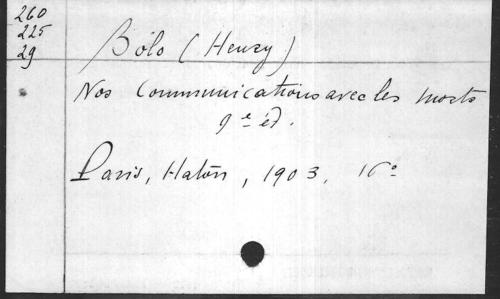 260
225
29
Bolo (Henry)
Nos Communications avec les morts
9e éd.
Paris, Haton, 1903, 16°